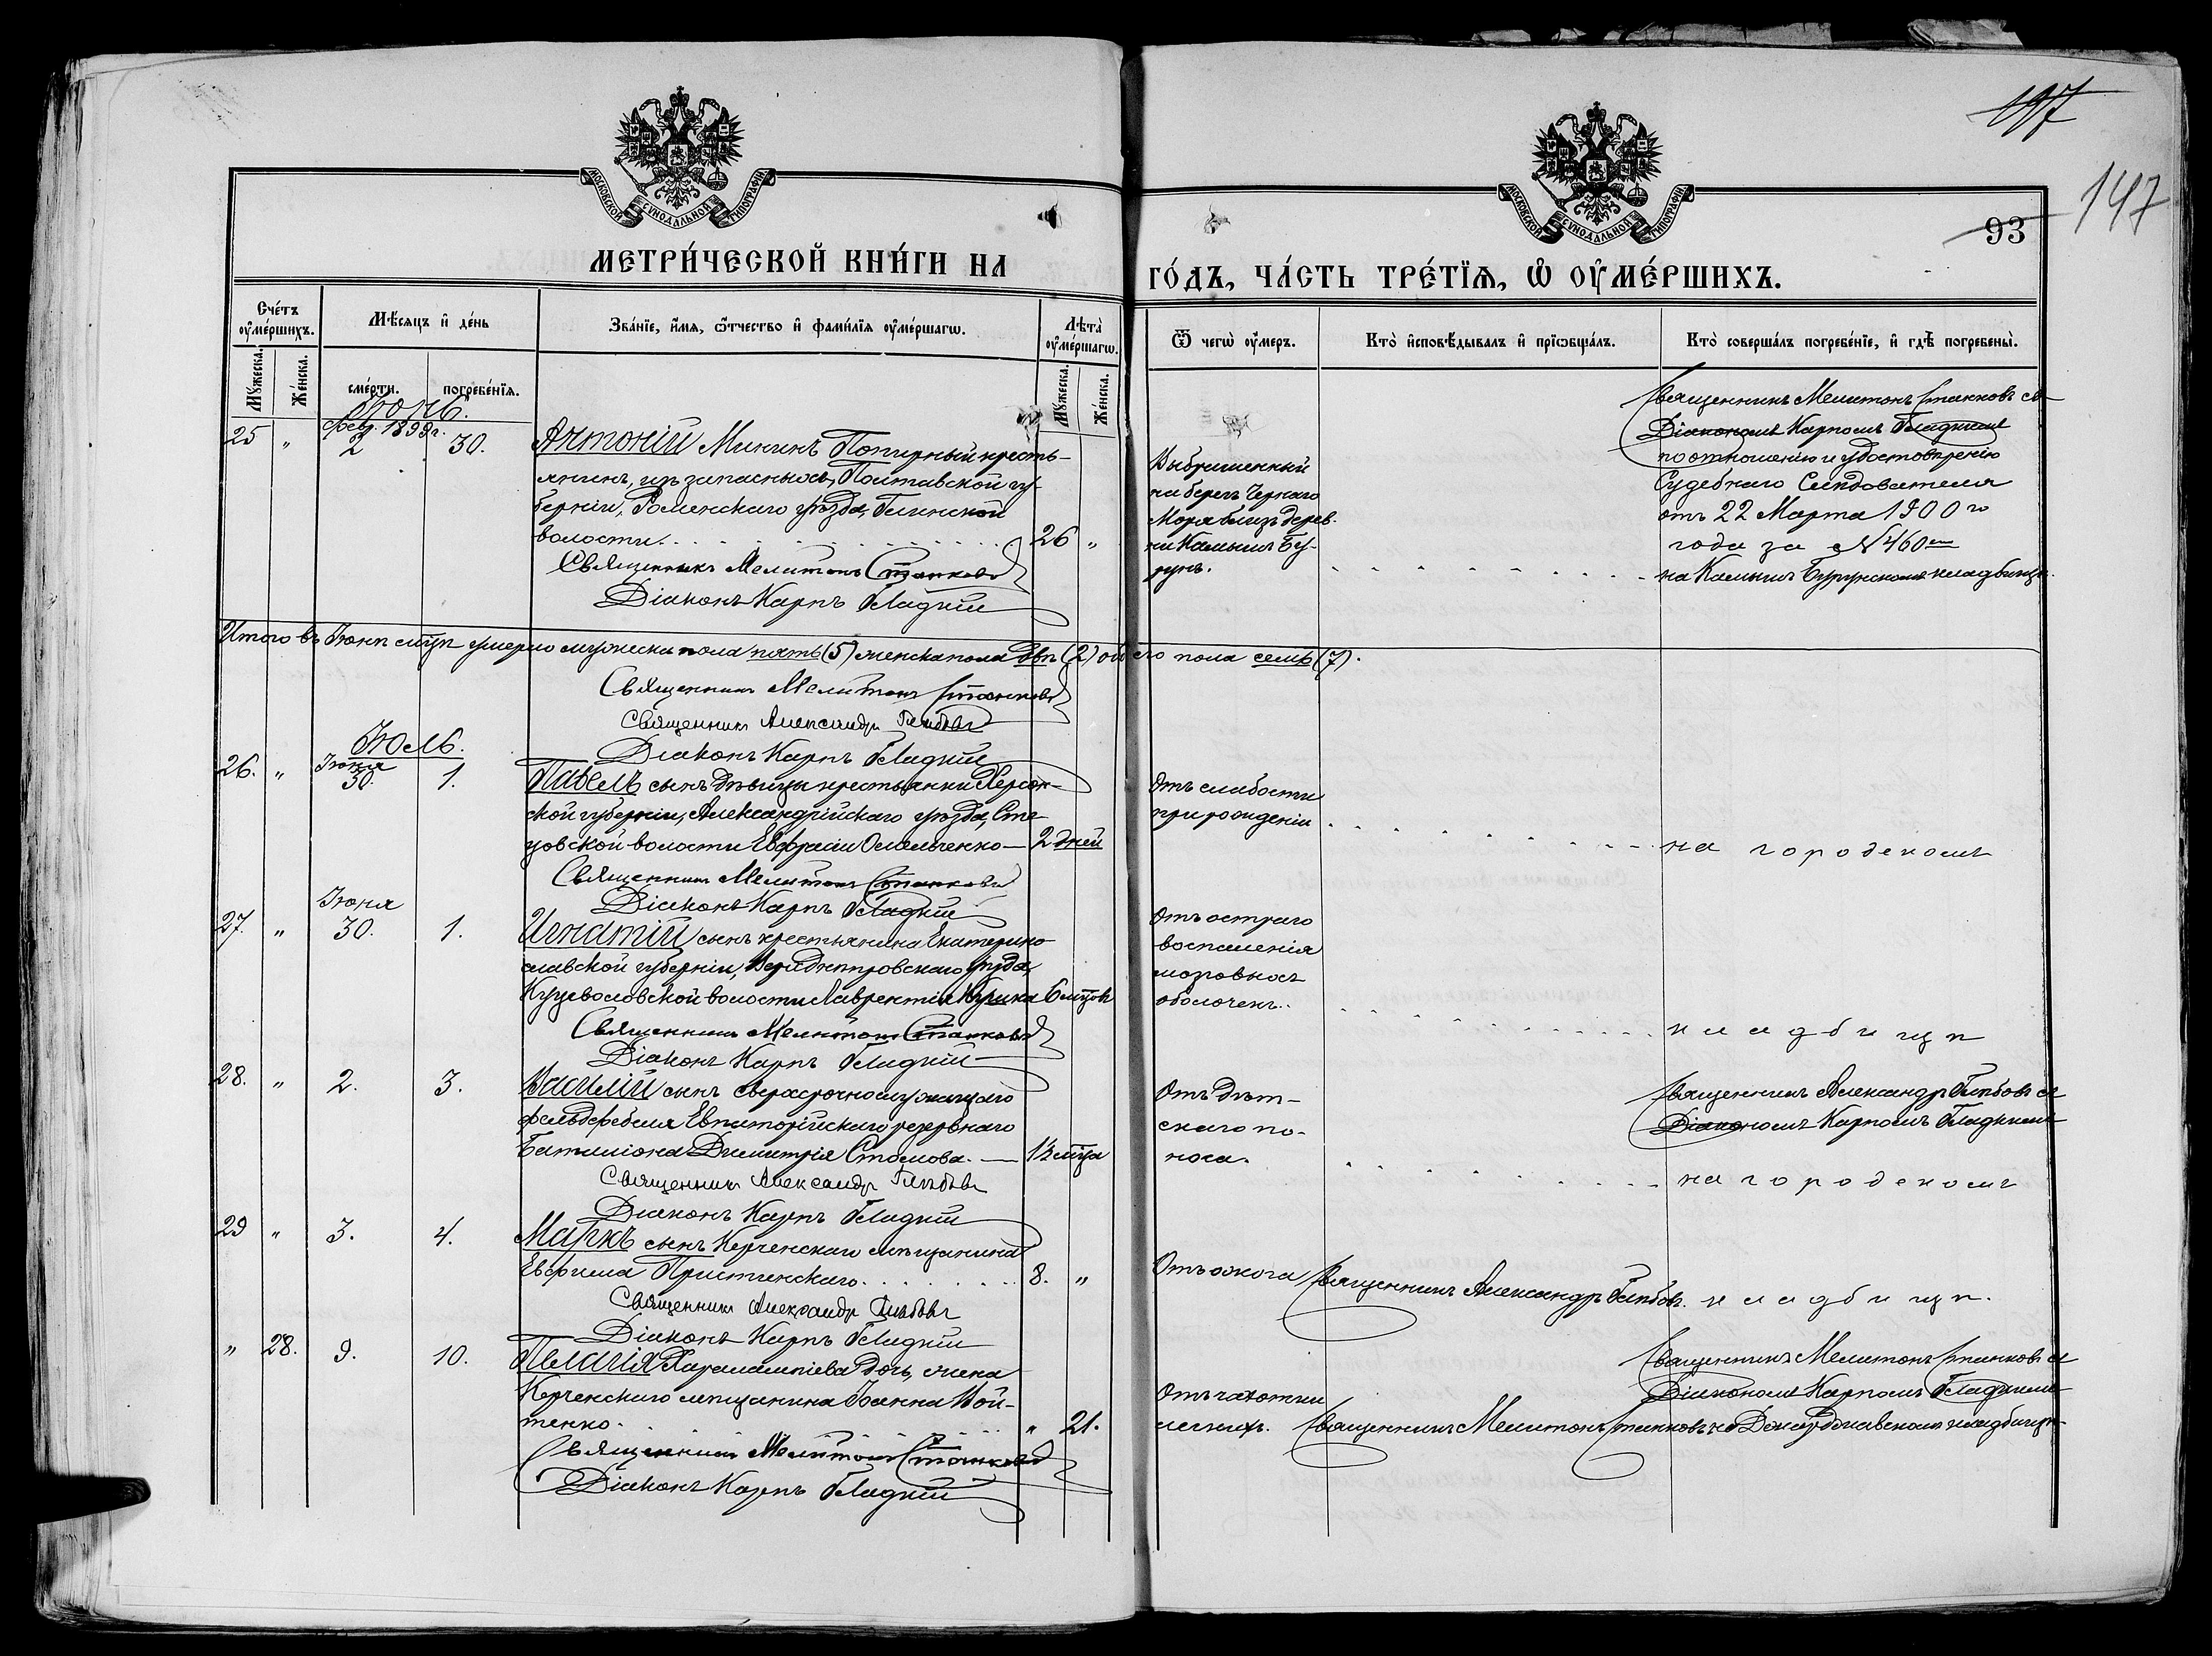 197
147
93
МОСКОВСКОЙ СУНОДАЛЬНОЙ ТИПОГРАФІИ
МОСКОВСКОЙ СУНОДАЛЬНОЙ ТИПОГРАФІИ
МЕТРИ́ЧЕСКОЙ КНИ́ГИ НА
ГО́ДЪ, ЧА́СТЬ ТРЕ́ТЇѦ, Ѡ҆ ОУ҆МЕ́РШИХЪ.
Сче́тъ оу҆ме́ршихъ.
Мѣ́сяцъ и҆ де́нь
Зва́нїе, и҆́мя, ѻ҆́тчество и҆ фами́лїя оу҆ме́ршагѡ.
Лѣта̀ оу҆ме́ршагѡ.
Ѿ чегѡ̀ оу҆́меръ.
Кто̀ и҆сповѣ́дывалъ и҆ прїѡбща́лъ.
Кто̀ соверша́лъ погребе́нїе, и҆ гдѣ̀ погребены̀.
Му́жеска.
Же́нска.
сме́рти.
погребе́нїя.
Му́жеска.
Же́нска.
Іюнь.
25 " Февр. 1899 г. 2 30.
Антоній Мининъ Попирный кресть-
янинъ, изъ запасныхъ, Полтавской гу-
берніи, Роменскаго уѣзда, Глинской
волости. 26 "
Священникъ Мелитонъ Станковъ
Діаконъ Карпъ Гладкій
Выброшенный
на берегъ Чернаго
Моря близъ дерев-
ни Камышъ Бу-
рунъ.
Священникъ Мелитонъ Станковъ съ
Діакономъ Карпомъ Гладкимъ
по отношенію и удостовѣренію
Судебнаго Слѣдователя
отъ 22 Марта 1900 го
года за № 460
на Камышъ Бурунскомъ кладбищѣ.
Итого въ Іюнѣ мцѣ умерло мужеска пола пять (5) женска пола двѣ (2) обоего пола семь (7).
Священникъ Мелитонъ Станковъ
Священникъ Александръ Глѣбовъ
Діаконъ Карпъ Гладкій
Іюль.
26. " Іюня 30. 1.
Павелъ сынъ дѣвицы крестьянки Херсон-
ской губерніи, Александрійскаго уѣзда,
волости Евфросиніи Омельченко — 2 дней
Священникъ Мелитонъ Станковъ
Діаконъ Карпъ Гладкій
Отъ слабости
при рожденіи
на городскомъ
27. " Іюня 30. 1.
Игнатій сынъ крестьянина Екатерино-
славской губерніи, Верхнеднѣпровскаго уѣзда,
Куцеволовской волости Лаврентія 6 мцовъ
Священникъ Мелитонъ Станковъ
Діаконъ Карпъ Гладкій
Отъ остраго
воспаленія
мозговыхъ
оболочекъ.
кладбищѣ
28. " 2. 3.
Василій сынъ сверхсрочнослужащаго
фельдфебеля Евпаторійскаго резервнаго
Баталіона Димитрія — 1½ мца
Священникъ Александръ Глѣбовъ
Діаконъ Карпъ Гладкій
Отъ дѣт-
скаго по-
носа.
Священникъ Александръ Глѣбовъ съ
Діакономъ Карпомъ Гладкимъ
на городскомъ
29 " 3. 4.
Маркъ сынъ Керченскаго мѣщанина
Евфима Пристинскаго. 8. "
Священникъ Александръ Глѣбовъ
Діаконъ Карпъ Гладкій
Отъ ожога
Священникъ Александръ Глѣбовъ.
кладбищѣ.
" 28. 9. 10.
Пелагія Харалампіева дочь, жена
Керченскаго мѣщанина Іоанна Вой-
тенко. " 21.
Священникъ Мелитонъ Станковъ
Діаконъ Карпъ Гладкій
Отъ чахотки
легкихъ.
Священникъ Мелитонъ Станковъ
Священникъ Мелитонъ Станковъ съ
Діакономъ Карпомъ Гладкимъ
на Джарджавскомъ кладбищѣ